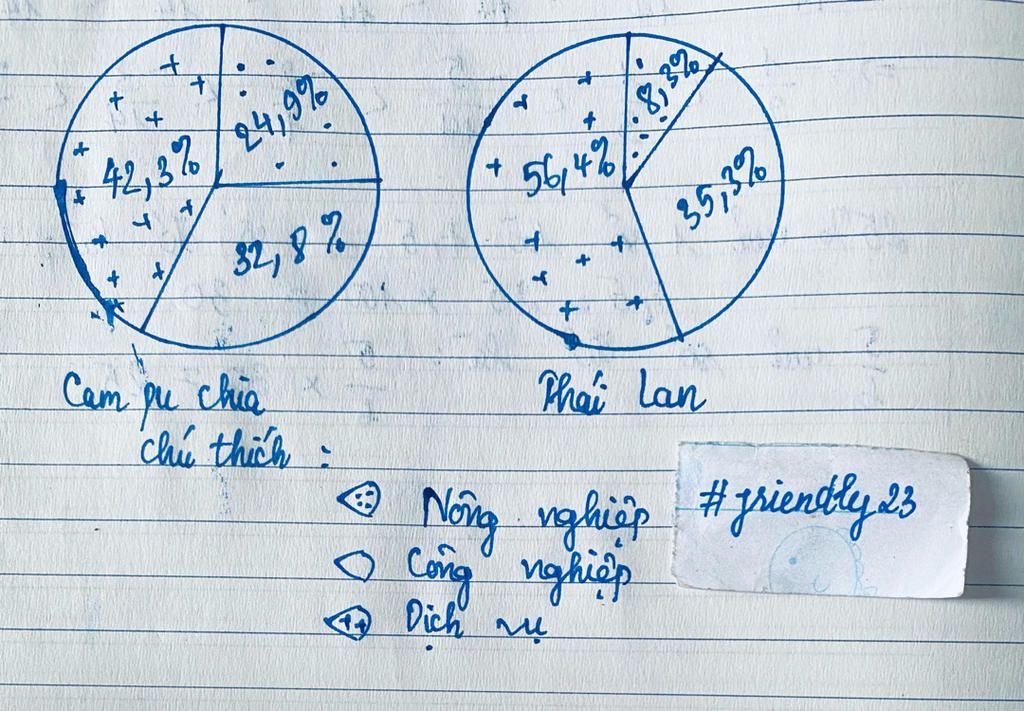 24,9%
42,3%
32,8%
8,3%
56,4%
35,3%
Cam pu chia
Thái Lan
chú thích :
Nông nghiệp
Công nghiệp
Dịch vụ
#friendly23